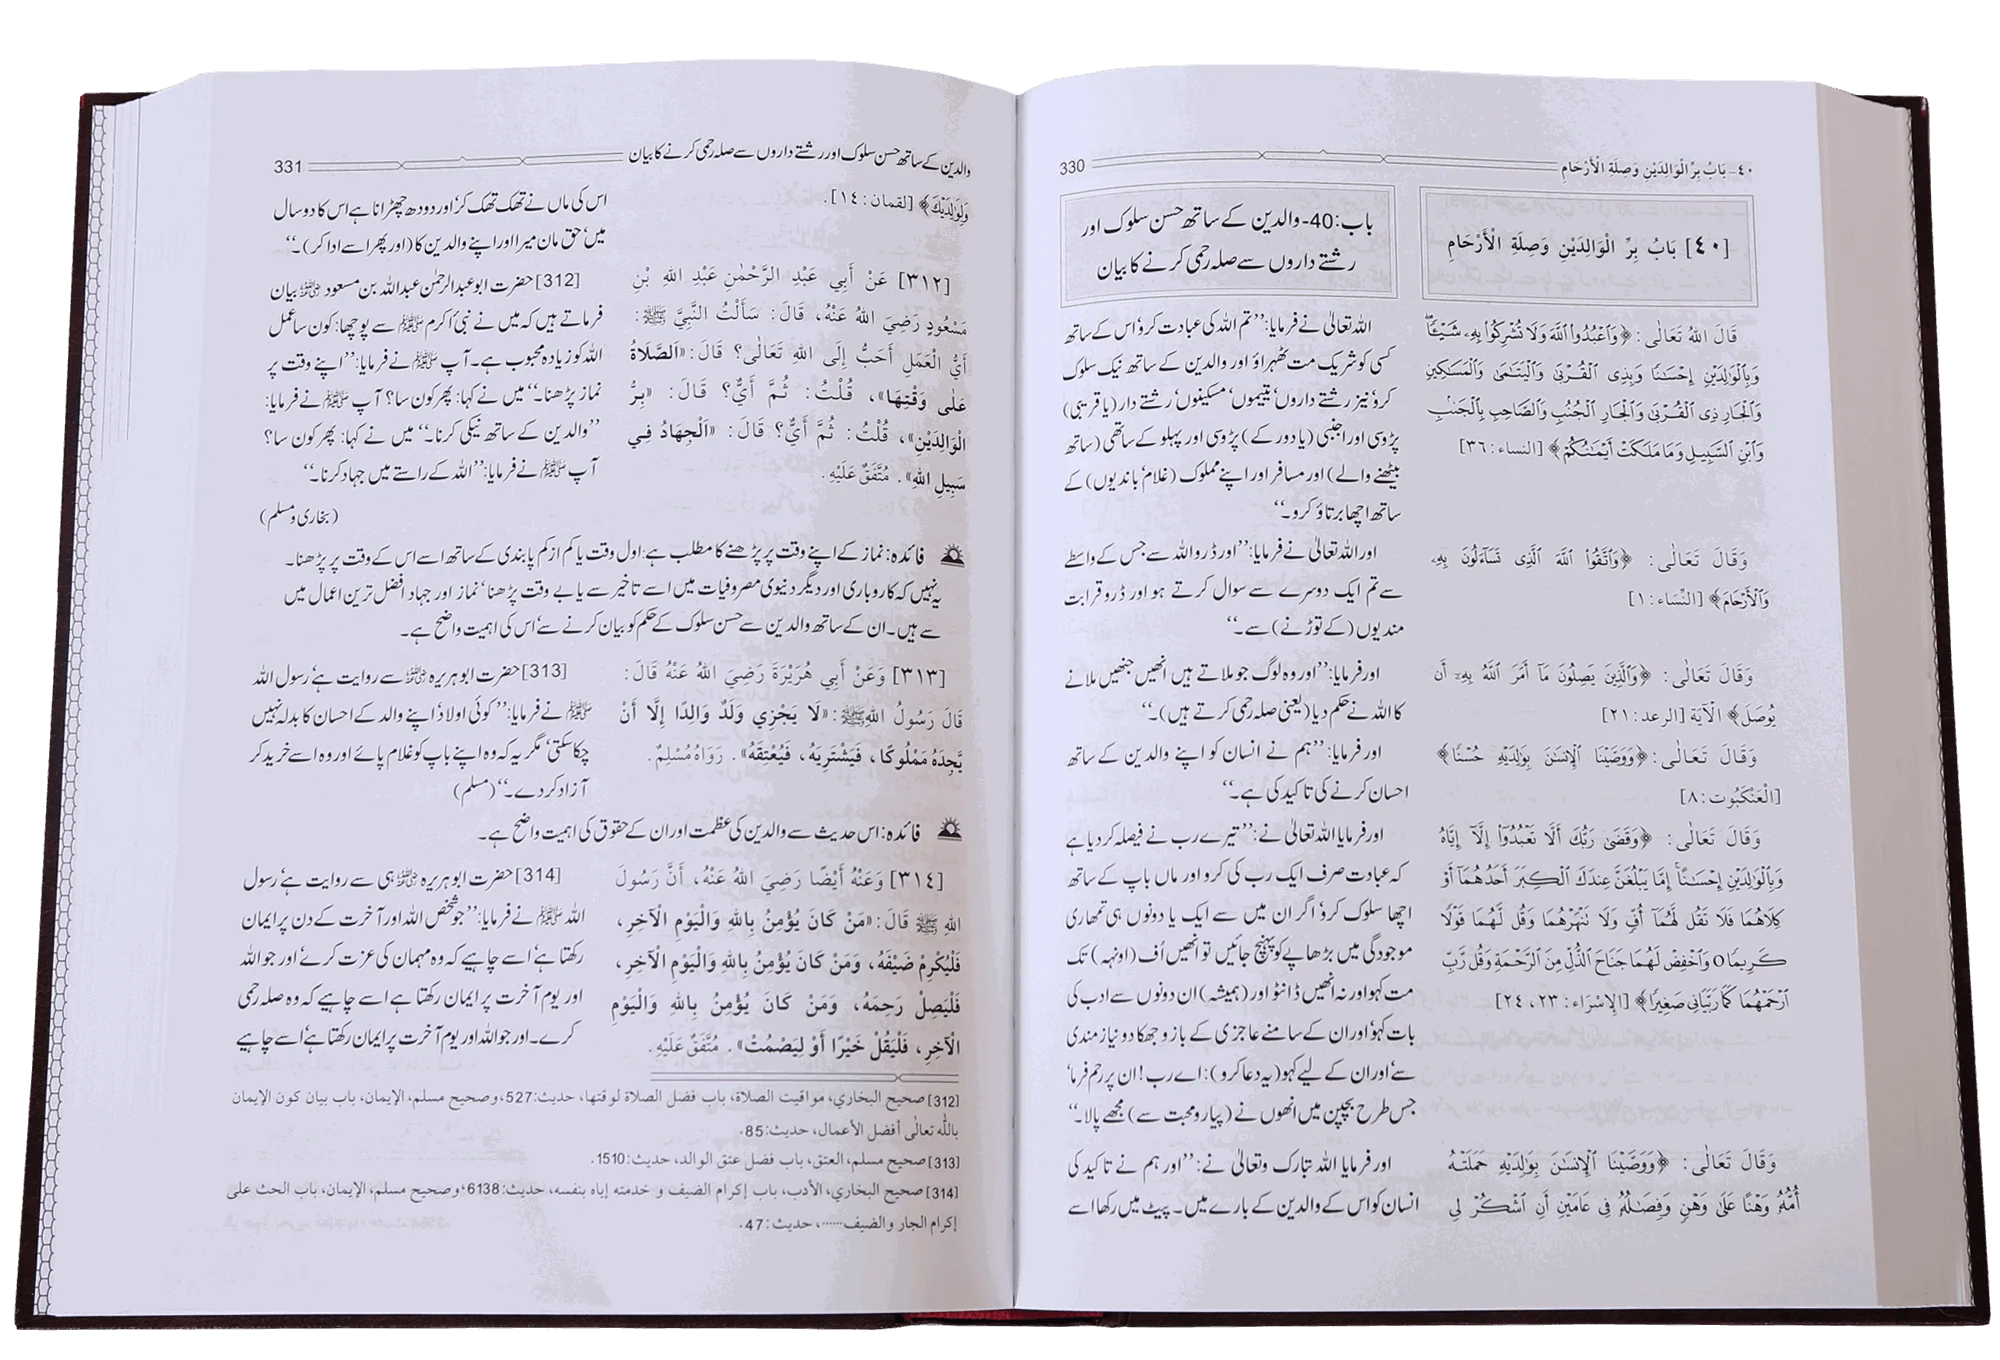 ٤٠- بَابُ بِرِّ الْوَالِدَيْنِ وَصِلَةِ الْأَرْحَامِ
330
[٤٠] بَابُ بِرِّ الْوَالِدَيْنِ وَصِلَةِ الْأَرْحَامِ
قَالَ اللهُ تَعَالٰى: ﴿وَٱعْبُدُوا۟ ٱللَّهَ وَلَا تُشْرِكُوا۟ بِهِۦ شَيْـًٔا ۖ
وَبِٱلْوَٰلِدَيْنِ إِحْسَـٰنًا وَبِذِى ٱلْقُرْبَىٰ وَٱلْيَتَـٰمَىٰ وَٱلْمَسَـٰكِينِ
وَٱلْجَارِ ذِى ٱلْقُرْبَىٰ وَٱلْجَارِ ٱلْجُنُبِ وَٱلصَّاحِبِ بِٱلْجَنۢبِ
وَٱبْنِ ٱلسَّبِيلِ وَمَا مَلَكَتْ أَيْمَـٰنُكُمْ﴾ [النساء: ٣٦]
وَقَالَ تَعَالٰى: ﴿وَٱتَّقُوا۟ ٱللَّهَ ٱلَّذِى تَسَآءَلُونَ بِهِۦ
وَٱلْأَرْحَامَ﴾ [النِّسَاء: ١]
وَقَالَ تَعَالٰى: ﴿وَٱلَّذِينَ يَصِلُونَ مَآ أَمَرَ ٱللَّهُ بِهِۦٓ أَن
يُوصَلَ﴾ الْآيَةَ [الرعد: ٢١]
وَقَالَ تَعَالٰى: ﴿وَوَصَّيْنَا ٱلْإِنسَـٰنَ بِوَٰلِدَيْهِ حُسْنًا﴾
[الْعَنْكَبُوت: ٨]
وَقَالَ تَعَالٰى: ﴿وَقَضَىٰ رَبُّكَ أَلَّا تَعْبُدُوٓا۟ إِلَّآ إِيَّاهُ
وَبِٱلْوَٰلِدَيْنِ إِحْسَـٰنًا ۚ إِمَّا يَبْلُغَنَّ عِندَكَ ٱلْكِبَرَ أَحَدُهُمَآ أَوْ
كِلَاهُمَا فَلَا تَقُل لَّهُمَآ أُفٍّ وَلَا تَنْهَرْهُمَا وَقُل لَّهُمَا قَوْلًا
كَرِيمًا ٥ وَٱخْفِضْ لَهُمَا جَنَاحَ ٱلذُّلِّ مِنَ ٱلرَّحْمَةِ وَقُل رَّبِّ
ٱرْحَمْهُمَا كَمَا رَبَّيَانِى صَغِيرًا﴾ [الإِسْرَاء: ٢٣، ٢٤]
وَقَالَ تَعَالٰى: ﴿وَوَصَّيْنَا ٱلْإِنسَـٰنَ بِوَٰلِدَيْهِ حَمَلَتْهُ
أُمُّهُۥ وَهْنًا عَلَىٰ وَهْنٍ وَفِصَـٰلُهُۥ فِى عَامَيْنِ أَنِ ٱشْكُرْ لِى
باب: 40- والدین کے ساتھ حسن سلوک اور
رشتے داروں سے صلہ رحمی کرنے کا بیان
اللہ تعالیٰ نے فرمایا: ’’تم اللہ کی عبادت کرو‘ اس کے ساتھ
کسی کو شریک مت ٹھہراؤ اور والدین کے ساتھ نیک سلوک
کرو‘ نیز رشتے داروں‘ یتیموں‘ مسکینوں‘ رشتے دار (یا قریبی)
پڑوسی اور اجنبی (یا دور کے) پڑوسی اور پہلو کے ساتھی (ساتھ
بیٹھنے والے) اور مسافر اور اپنے مملوک (غلام‘ باندیوں) کے
ساتھ اچھا برتاؤ کرو۔‘‘
اور اللہ تعالیٰ نے فرمایا: ’’اور ڈرو اللہ سے جس کے واسطے
سے تم ایک دوسرے سے سوال کرتے ہو اور ڈرو قرابت
مندیوں (کے توڑنے) سے۔‘‘
اور فرمایا: ’’اور وہ لوگ جو ملاتے ہیں انھیں جنھیں ملانے
کا اللہ نے حکم دیا (یعنی صلہ رحمی کرتے ہیں)۔‘‘
اور فرمایا: ’’ہم نے انسان کو اپنے والدین کے ساتھ
احسان کرنے کی تاکید کی ہے۔‘‘
اور فرمایا اللہ تعالیٰ نے: ’’تیرے رب نے فیصلہ کر دیا ہے
کہ عبادت صرف ایک رب کی کرو اور ماں باپ کے ساتھ
اچھا سلوک کرو‘ اگر ان میں سے ایک یا دونوں ہی تمھاری
موجودگی میں بڑھاپے کو پہنچ جائیں تو انھیں اُف (اونہہ) تک
مت کہو اور نہ انھیں ڈانٹو اور (ہمیشہ) ان دونوں سے ادب کی
بات کہو‘ اور ان کے سامنے عاجزی کے بازو جھکا دو نیاز مندی
سے‘ اور ان کے لیے کہو (یہ دعا کرو): اے رب! ان پر رحم فرما‘
جس طرح بچپن میں انھوں نے (پیار و محبت سے) مجھے پالا۔‘‘
اور فرمایا اللہ تبارک وتعالیٰ نے: ’’اور ہم نے تاکید کی
انسان کو اس کے والدین کے بارے میں۔ پیٹ میں رکھا اسے
والدین کے ساتھ حسن سلوک اور رشتے داروں سے صلہ رحمی کرنے کا بیان
331
وَلِوَٰلِدَيْكَ﴾ [لقمان: ١٤].
[٣١٢] عَنْ أَبِي عَبْدِ الرَّحْمٰنِ عَبْدِ اللهِ بْنِ
مَسْعُودٍ رَضِيَ اللهُ عَنْهُ، قَالَ: سَأَلْتُ النَّبِيَّ ﷺ:
أَيُّ الْعَمَلِ أَحَبُّ إِلَى اللهِ تَعَالٰى؟ قَالَ: «الصَّلَاةُ
عَلٰى وَقْتِهَا»، قُلْتُ: ثُمَّ أَيٌّ؟ قَالَ: «بِرُّ
الْوَالِدَيْنِ»، قُلْتُ: ثُمَّ أَيٌّ؟ قَالَ: «الْجِهَادُ فِي
سَبِيلِ اللهِ». مُتَّفَقٌ عَلَيْهِ.
اس کی ماں نے تھک تھک کر‘ اور دودھ چھڑانا ہے اس کا دو سال
میں‘ حق مان میرا اور اپنے والدین کا (اور پھر اسے ادا کر)۔‘‘
[312] حضرت ابوعبدالرحمٰن عبداللہ بن مسعود ﷛ بیان
فرماتے ہیں کہ میں نے نبیٔ اکرم ﷺ سے پوچھا: کون سا عمل
اللہ کو زیادہ محبوب ہے۔ آپ ﷺ نے فرمایا: ’’اپنے وقت پر
نماز پڑھنا۔‘‘ میں نے کہا: پھر کون سا؟ آپ ﷺ نے فرمایا:
’’والدین کے ساتھ نیکی کرنا۔‘‘ میں نے کہا: پھر کون سا؟
آپ ﷺ نے فرمایا: ’’اللہ کے راستے میں جہاد کرنا۔‘‘
(بخاری و مسلم)
فائدہ: نماز کے اپنے وقت پر پڑھنے کا مطلب ہے: اول وقت یا کم از کم پابندی کے ساتھ اسے اس کے وقت پر پڑھنا۔
یہ نہیں کہ کاروباری اور دیگر دنیوی مصروفیات میں اسے تاخیر سے یا بے وقت پڑھنا‘ نماز اور جہاد افضل ترین اعمال میں
سے ہیں۔ ان کے ساتھ والدین سے حسن سلوک کے حکم کو بیان کرنے سے اس کی اہمیت واضح ہے۔
[٣١٣] وَعَنْ أَبِي هُرَيْرَةَ رَضِيَ اللهُ عَنْهُ قَالَ:
قَالَ رَسُولُ اللهِ ﷺ: «لَا يَجْزِي وَلَدٌ وَالِدًا إِلَّا أَنْ
يَّجِدَهُ مَمْلُوكًا، فَيَشْتَرِيَهُ، فَيُعْتِقَهُ». رَوَاهُ مُسْلِمٌ.
[313] حضرت ابوہریرہ ﷛ سے روایت ہے‘ رسول اللہ
ﷺ نے فرمایا: ’’کوئی اولاد‘ اپنے والد کے احسان کا بدلہ نہیں
چکا سکتی‘ مگر یہ کہ وہ اپنے باپ کو غلام پائے اور وہ اسے خرید کر
آزاد کر دے۔‘‘ (مسلم)
فائدہ: اس حدیث سے والدین کی عظمت اور ان کے حقوق کی اہمیت واضح ہے۔
[٣١٤] وَعَنْهُ أَيْضًا رَضِيَ اللهُ عَنْهُ، أَنَّ رَسُولَ
اللهِ ﷺ قَالَ: «مَنْ كَانَ يُؤْمِنُ بِاللهِ وَالْيَوْمِ الْآخِرِ،
فَلْيُكْرِمْ ضَيْفَهُ، وَمَنْ كَانَ يُؤْمِنُ بِاللهِ وَالْيَوْمِ الْآخِرِ،
فَلْيَصِلْ رَحِمَهُ، وَمَنْ كَانَ يُؤْمِنُ بِاللهِ وَالْيَوْمِ
الْآخِرِ، فَلْيَقُلْ خَيْرًا أَوْ لِيَصْمُتْ». مُتَّفَقٌ عَلَيْهِ.
[314] حضرت ابوہریرہ ﷛ ہی سے روایت ہے‘ رسول
اللہ ﷺ نے فرمایا: ’’جو شخص اللہ اور آخرت کے دن پر ایمان
رکھتا ہے‘ اسے چاہیے کہ وہ مہمان کی عزت کرے‘ اور جو اللہ
اور یوم آخرت پر ایمان رکھتا ہے اسے چاہیے کہ وہ صلہ رحمی
کرے۔ اور جو اللہ اور یوم آخرت پر ایمان رکھتا ہے‘ اسے چاہیے
[312] صحيح البخاري، مواقيت الصلاة، باب فضل الصلاة لوقتها، حديث:527، وصحيح مسلم، الإيمان، باب بيان كون الإيمان
بالله تعالى أفضل الأعمال، حديث:85.
[313] صحيح مسلم، العتق، باب فضل عتق الوالد، حديث:1510.
[314] صحيح البخاري، الأدب، باب إكرام الضيف و خدمته إياه بنفسه، حديث:6138، وصحيح مسلم، الإيمان، باب الحث على
إكرام الجار والضيف......، حديث:47.